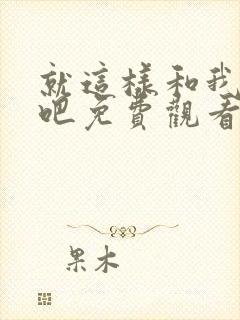 就這樣和我
吧免費觀看
果木